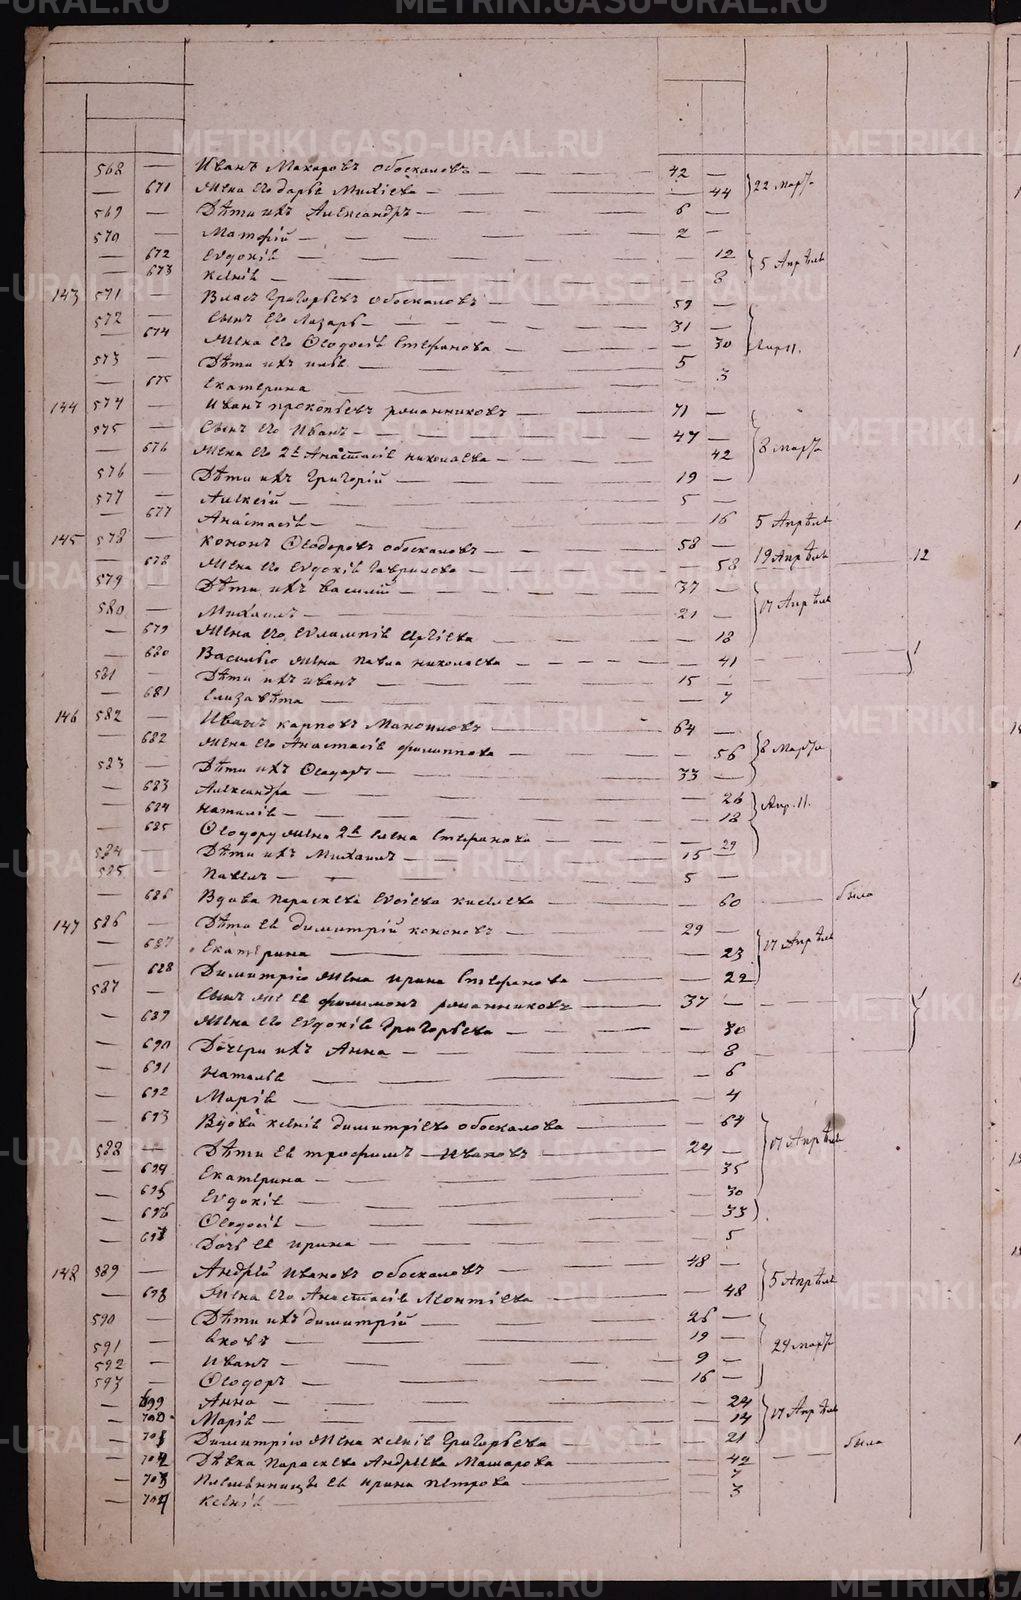 METRIKI.GASO-URAL.RU
568 — Иванъ Макаровъ обоскаловъ — 42 — 22 Марта
— 671 Жена его Дарья — 44
569 — Дѣти ихъ Александръ — 6 —
570 — Матфій — 2 —
— 672 Евдокія — 12 5 Апрѣля
— 673 Ксенія — 8
143 571 — Власъ Григорьевъ обоскаловъ — 59 —
572 — Сынъ его Лазарь — 31 —
— 674 Жена его Ѳеодосія Стефанова — 30 Апр 11.
573 — Дѣти ихъ — 5
— 675 Екатерина — 3
144 574 — Иванъ прокопьевъ — 71 —
575 — Сынъ его Иванъ — 47 —
— 676 Жена его 2я Анастасія николаева — 42 8 Марта
576 — Дѣти ихъ Григорій — 19 —
577 — Алексій — 5 —
— 677 Анастасія — 16 5 Апрѣля
145 578 — кононъ Ѳеодоровъ обоскаловъ — 58 —
— 678 Жена его Евдокія Гаврилова — 58 19 Апрѣля 12
579 — Дѣти ихъ Василій — 37 —
580 — Михаилъ — 21 — 17 Апрѣля
— 679 Жена его Евлампія — 18
— 680 Василью жена Павла николаева — 41 1
581 — Дѣти ихъ иванъ — 15 —
— 681 Елизавѣта — 7
146 582 — Иванъ карповъ — 64 —
— 682 Жена его Анастасія филиппова — 56 8 Марта
583 — Дѣти ихъ Ѳеодоръ — 33 —
— 683 Александра — 26 Апр. 11.
— 684 Наталія — 18
— 685 Ѳеодору жена 2я Елена Стефанова — 29
584 — Дѣти ихъ Михаилъ — 15 —
585 — Павелъ — 5 —
— 686 Вдова Параскева — 60 была
147 586 — Дѣти ея димитрій кононовъ — 29 —
— 687 Екатерина — 23 17 Апрѣля
— 688 Димитрію жена ирина Стефанова — 22
587 — Сынъ же ея филимонъ — 37 —
— 689 Жена его Евдокія Григорьева — 30
— 690 Дочери ихъ Анна — 8
— 691 Наталья — 6
— 692 Марія — 4
— 693 Вдова ксенія димитріева обоскалова — 64
588 — Дѣти ея трофимъ Ивановъ — 24 — 17 Апрѣля
— 694 Екатерина — 35
— 695 Евдокія — 30
— 696 Ѳеодосія — 33
— 697 Дочь ея ирина — 5
148 589 — Андрей Ивановъ обоскаловъ — 48 —
— 698 Жена его Анастасія Леонтіева — 48 5 Апрѣля
590 — Дѣти ихъ димитрій — 26 —
591 — Яковъ — 19 — 29 марта
592 — Иванъ — 9 —
593 — Ѳеодоръ — 16 —
— 699 Анна — 24
— 700 Марія — 14 17 Апрѣля
— 701 Димитрію жена ксенія Григорьева — 21 была
— 702 Дѣвка Параскева Андреева — 42
— 703 Племянницы ея ирина петрова — 7
— 704 Ксенія — 3
METRIKI.GASO-URAL.RU